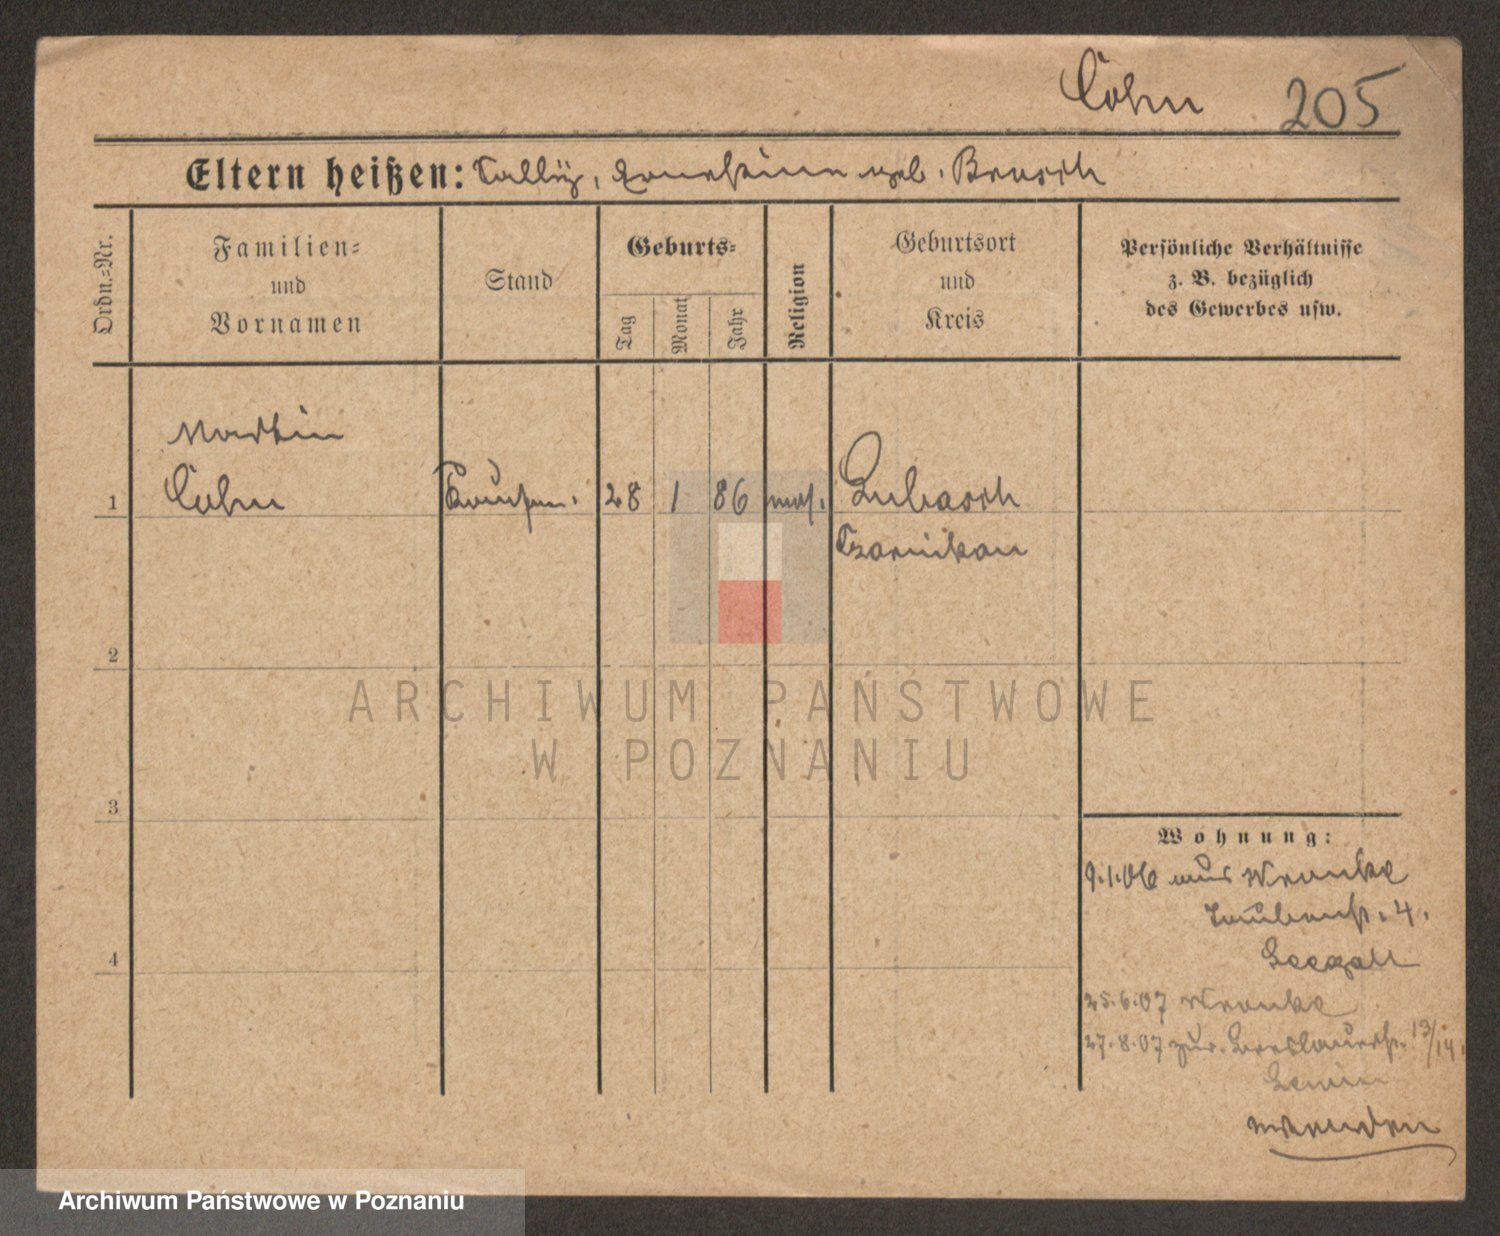 Cohn 205
Eltern heißen: Sally, Ernestine geb. Brasch
Ordn.=Nr.
Familien=
und
Vornamen
Stand
Geburts=
Tag
Monat
Jahr
Religion
Geburtsort
und
Kreis
Persönliche Verhältnisse
z. B. bezüglich
des Gewerbes usw.
Martin
1 Cohn Kaufm. 28 1 86 mos. Lubasch
Czarnikau
2
ARCHIWUM PAŃSTWOWE
W POZNANIU
3
Wohnung:
9.1.06 aus Wronke
Taubenst. 4.
Seegall
25.6.07 Wronke
27.8.07 zur. Breslauerst. 13/14.
Lewin
wenden
4
Archiwum Państwowe w Poznaniu